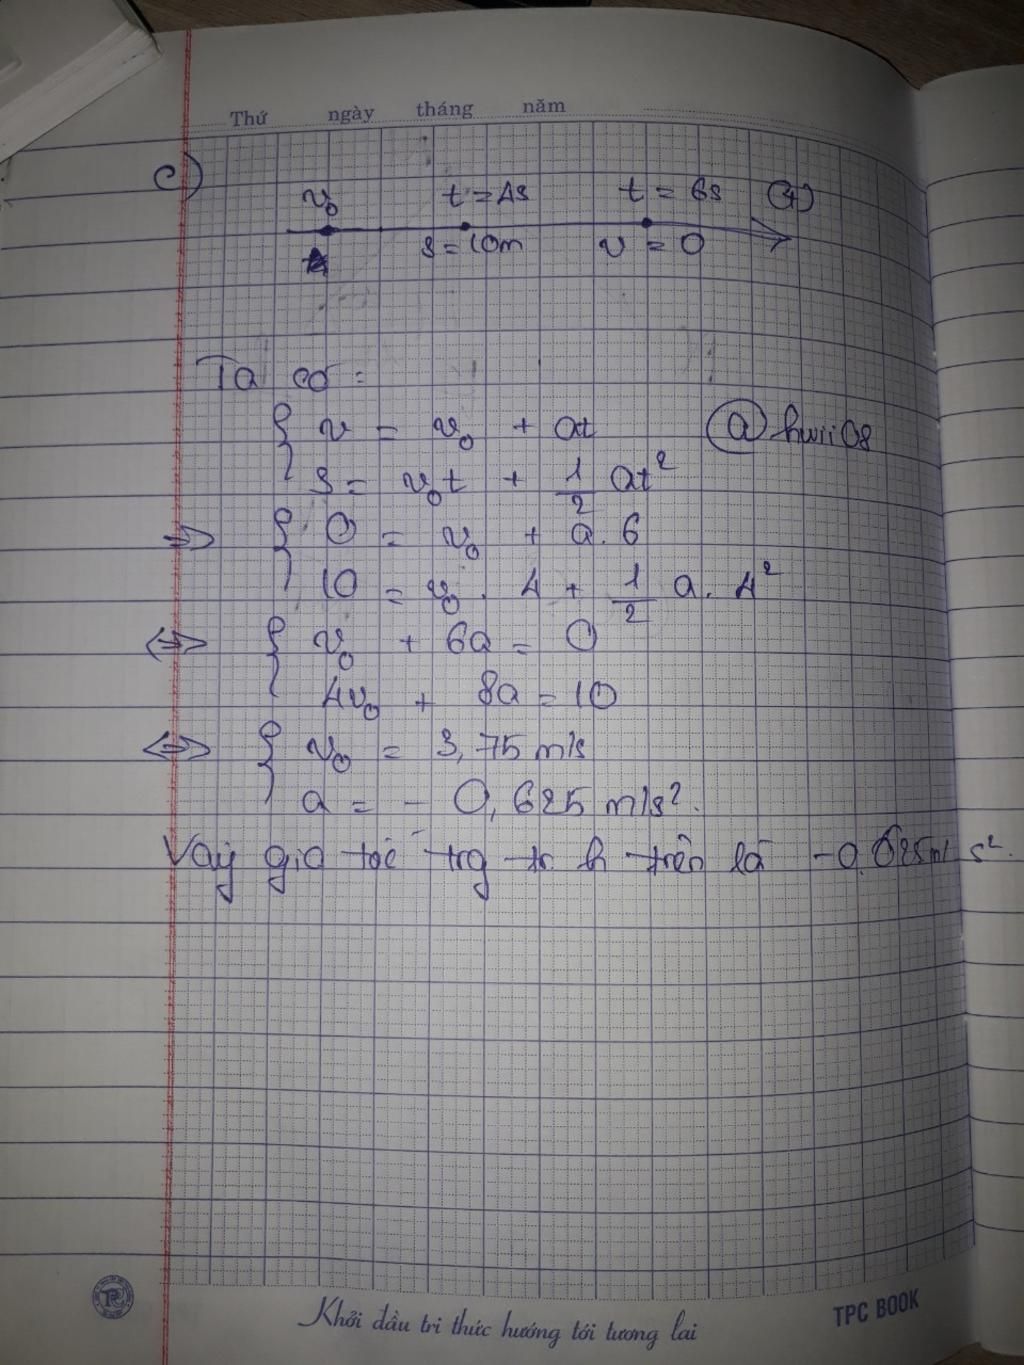 Thứ ngày tháng năm
c)
v₀ t = 4s t = 6s (+)
s = 10m v = 0
Ta có:
{ v = v₀ + at @hwii08
s = v₀t + 1/2 at²
=> { 0 = v₀ + a.6
10 = v₀. 4 + 1/2 a. 4²
<=> { v₀ + 6a = 0
4v₀ + 8a = 10
<=> { v₀ = 3,75 m/s
a = - 0,625 m/s².
Vậy gia tốc trg tr.h trên là -0,625m/s².
Khởi đầu tri thức hướng tới tương lai
TPC BOOK